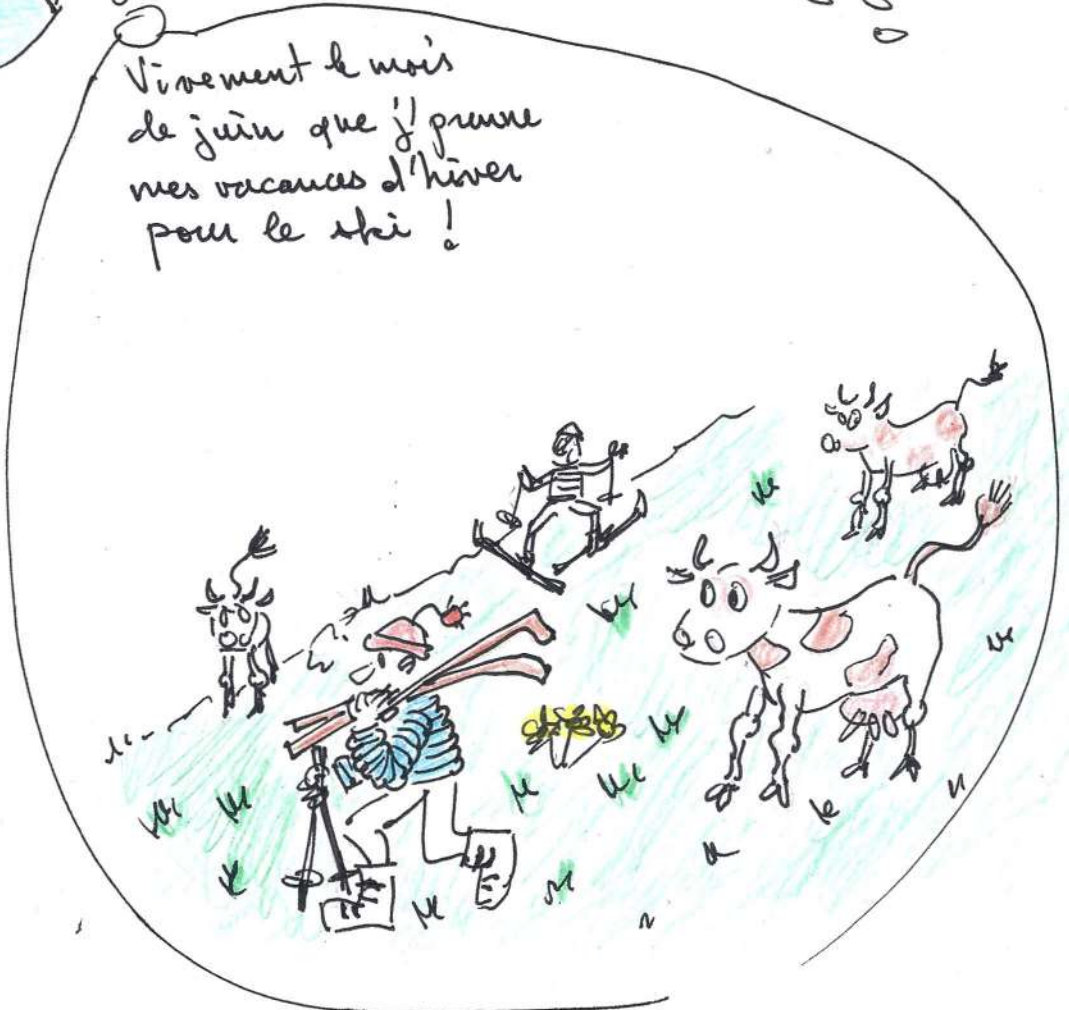 Vivement le mois
de juin que j' prenne
mes vacances d'hiver
pour le ski !